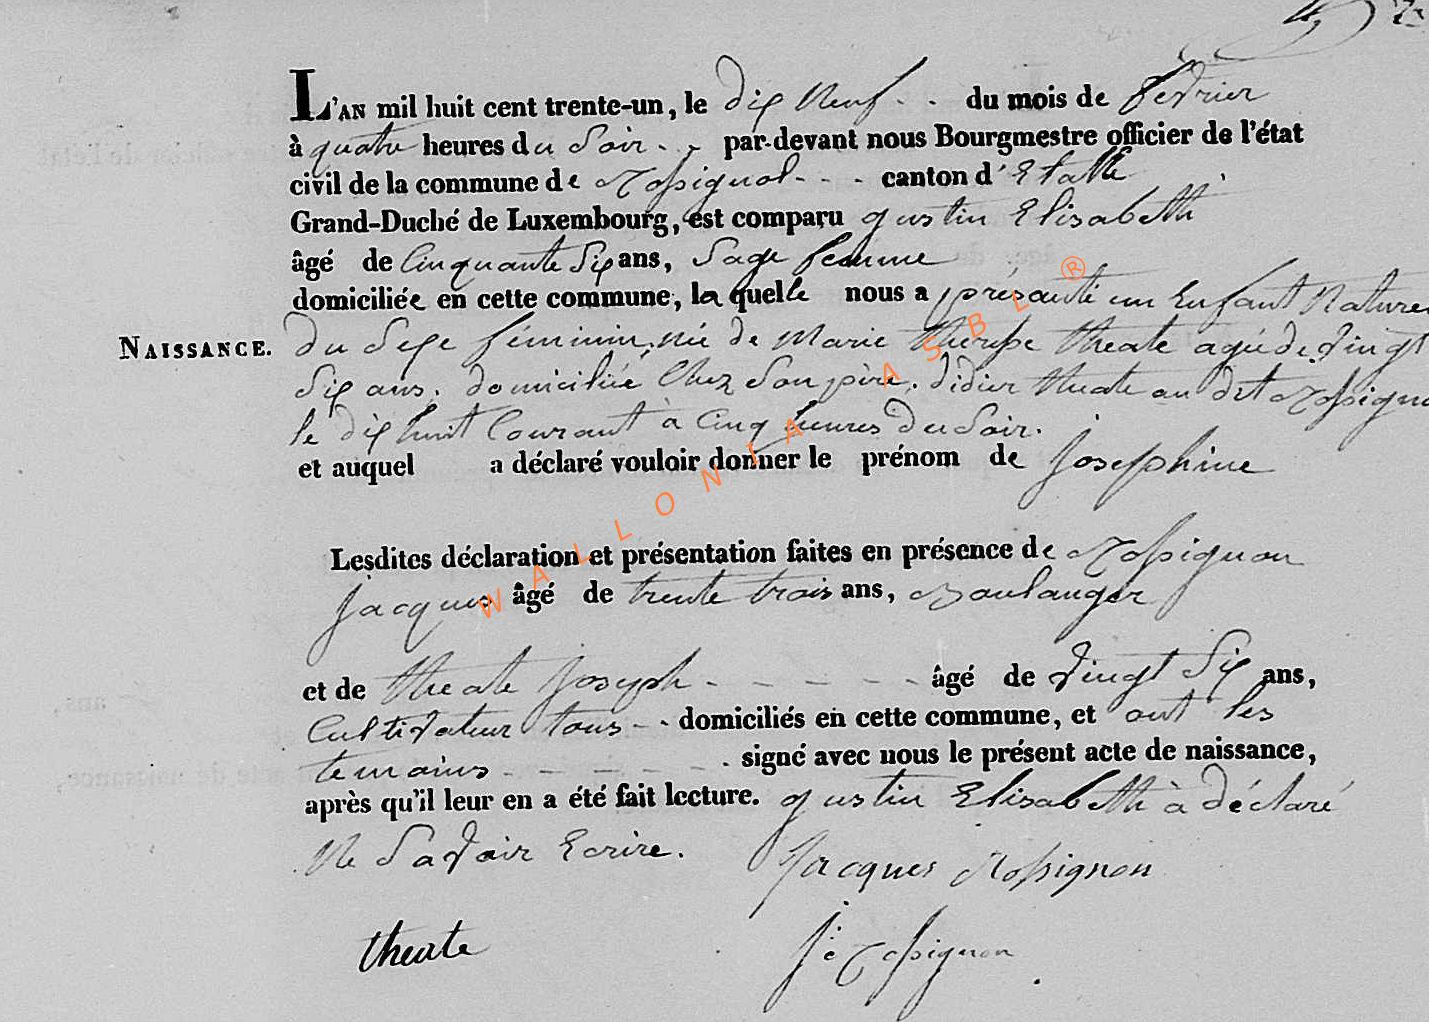 L'AN mil huit cent trente-un, le dix Neuf - - du mois de fevrier
à quatre heures du Soir - - par-devant nous Bourgmestre officier de l'état
civil de la commune de Rossignol - - - canton d'Etalle
Grand-Duché de Luxembourg, est comparu gustin Elisabeth
âgé de Cinquante Six ans, Sage femme
domiciliée en cette commune, la quelle nous a présanté un Enfant Naturel
NAISSANCE. du Sexe féminin, né de Marie therese theate agée de vingt
Six ans, domiciliée Chez Son père, didier theate au dit Rossignol
le dix huit Courant à Cinq heures Du Soir.
et auquel a déclaré vouloir donner le prénom de Josephine
Lesdites déclaration et présentation faites en présence de Rossignon
Jacques âgé de trente trois ans, Boulanger
et de theate Joseph - - - - - âgé de vingt Six ans,
Cultivateur tous - - domiciliés en cette commune, et ont les
temains - - - - - - signé avec nous le présent acte de naissance,
après qu'il leur en a été fait lecture. gustin Elisabeth à déclaré
Ne Savoir Ecrire.
Jacques Rossignon
theate
Je Rossignon
WALLONIA ASBL ®